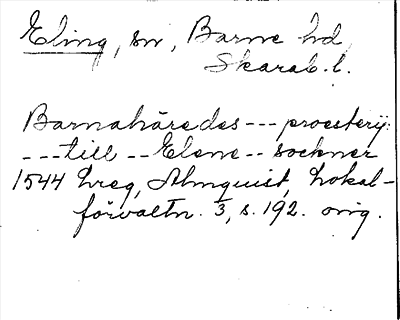 Eling, sn, Barne hd
Skarab. l.
Barnahäredes --- proestery:
--- till -- Elene -- sockner
1544 hreg, Almquist, Lokal-
förvaltn. 3, s. 192. orig.